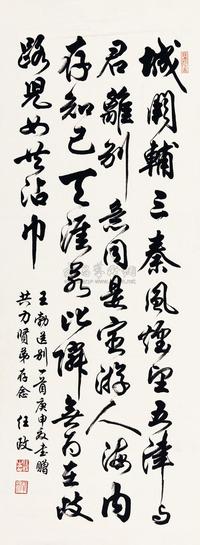 城闕輔三秦風煙望五津与
君離別意同是宦游人海内
存知己天涯若比隣無為在歧
路兒女共沾巾
王勃送別一首庚申書贈
共力賢弟存念 任政